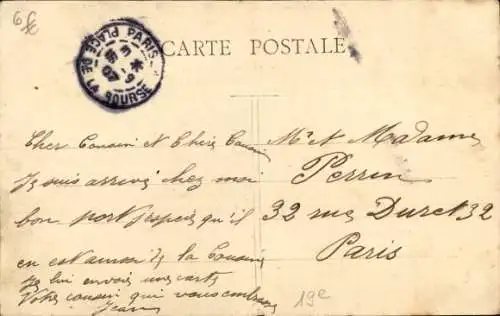 6€
PARIS
PLACE DE LA BOURSE
CARTE POSTALE
Cher Cousin & Chère Cousine
Je suis arrivé chez moi
bon port j'espère qu'il
en est ainsi de la Cousine
Je lui envoie une carte
Votre cousin qui vous embrasse
Jean
Mr & Madame
Perrin
32 rue Duret 32
Paris
19e